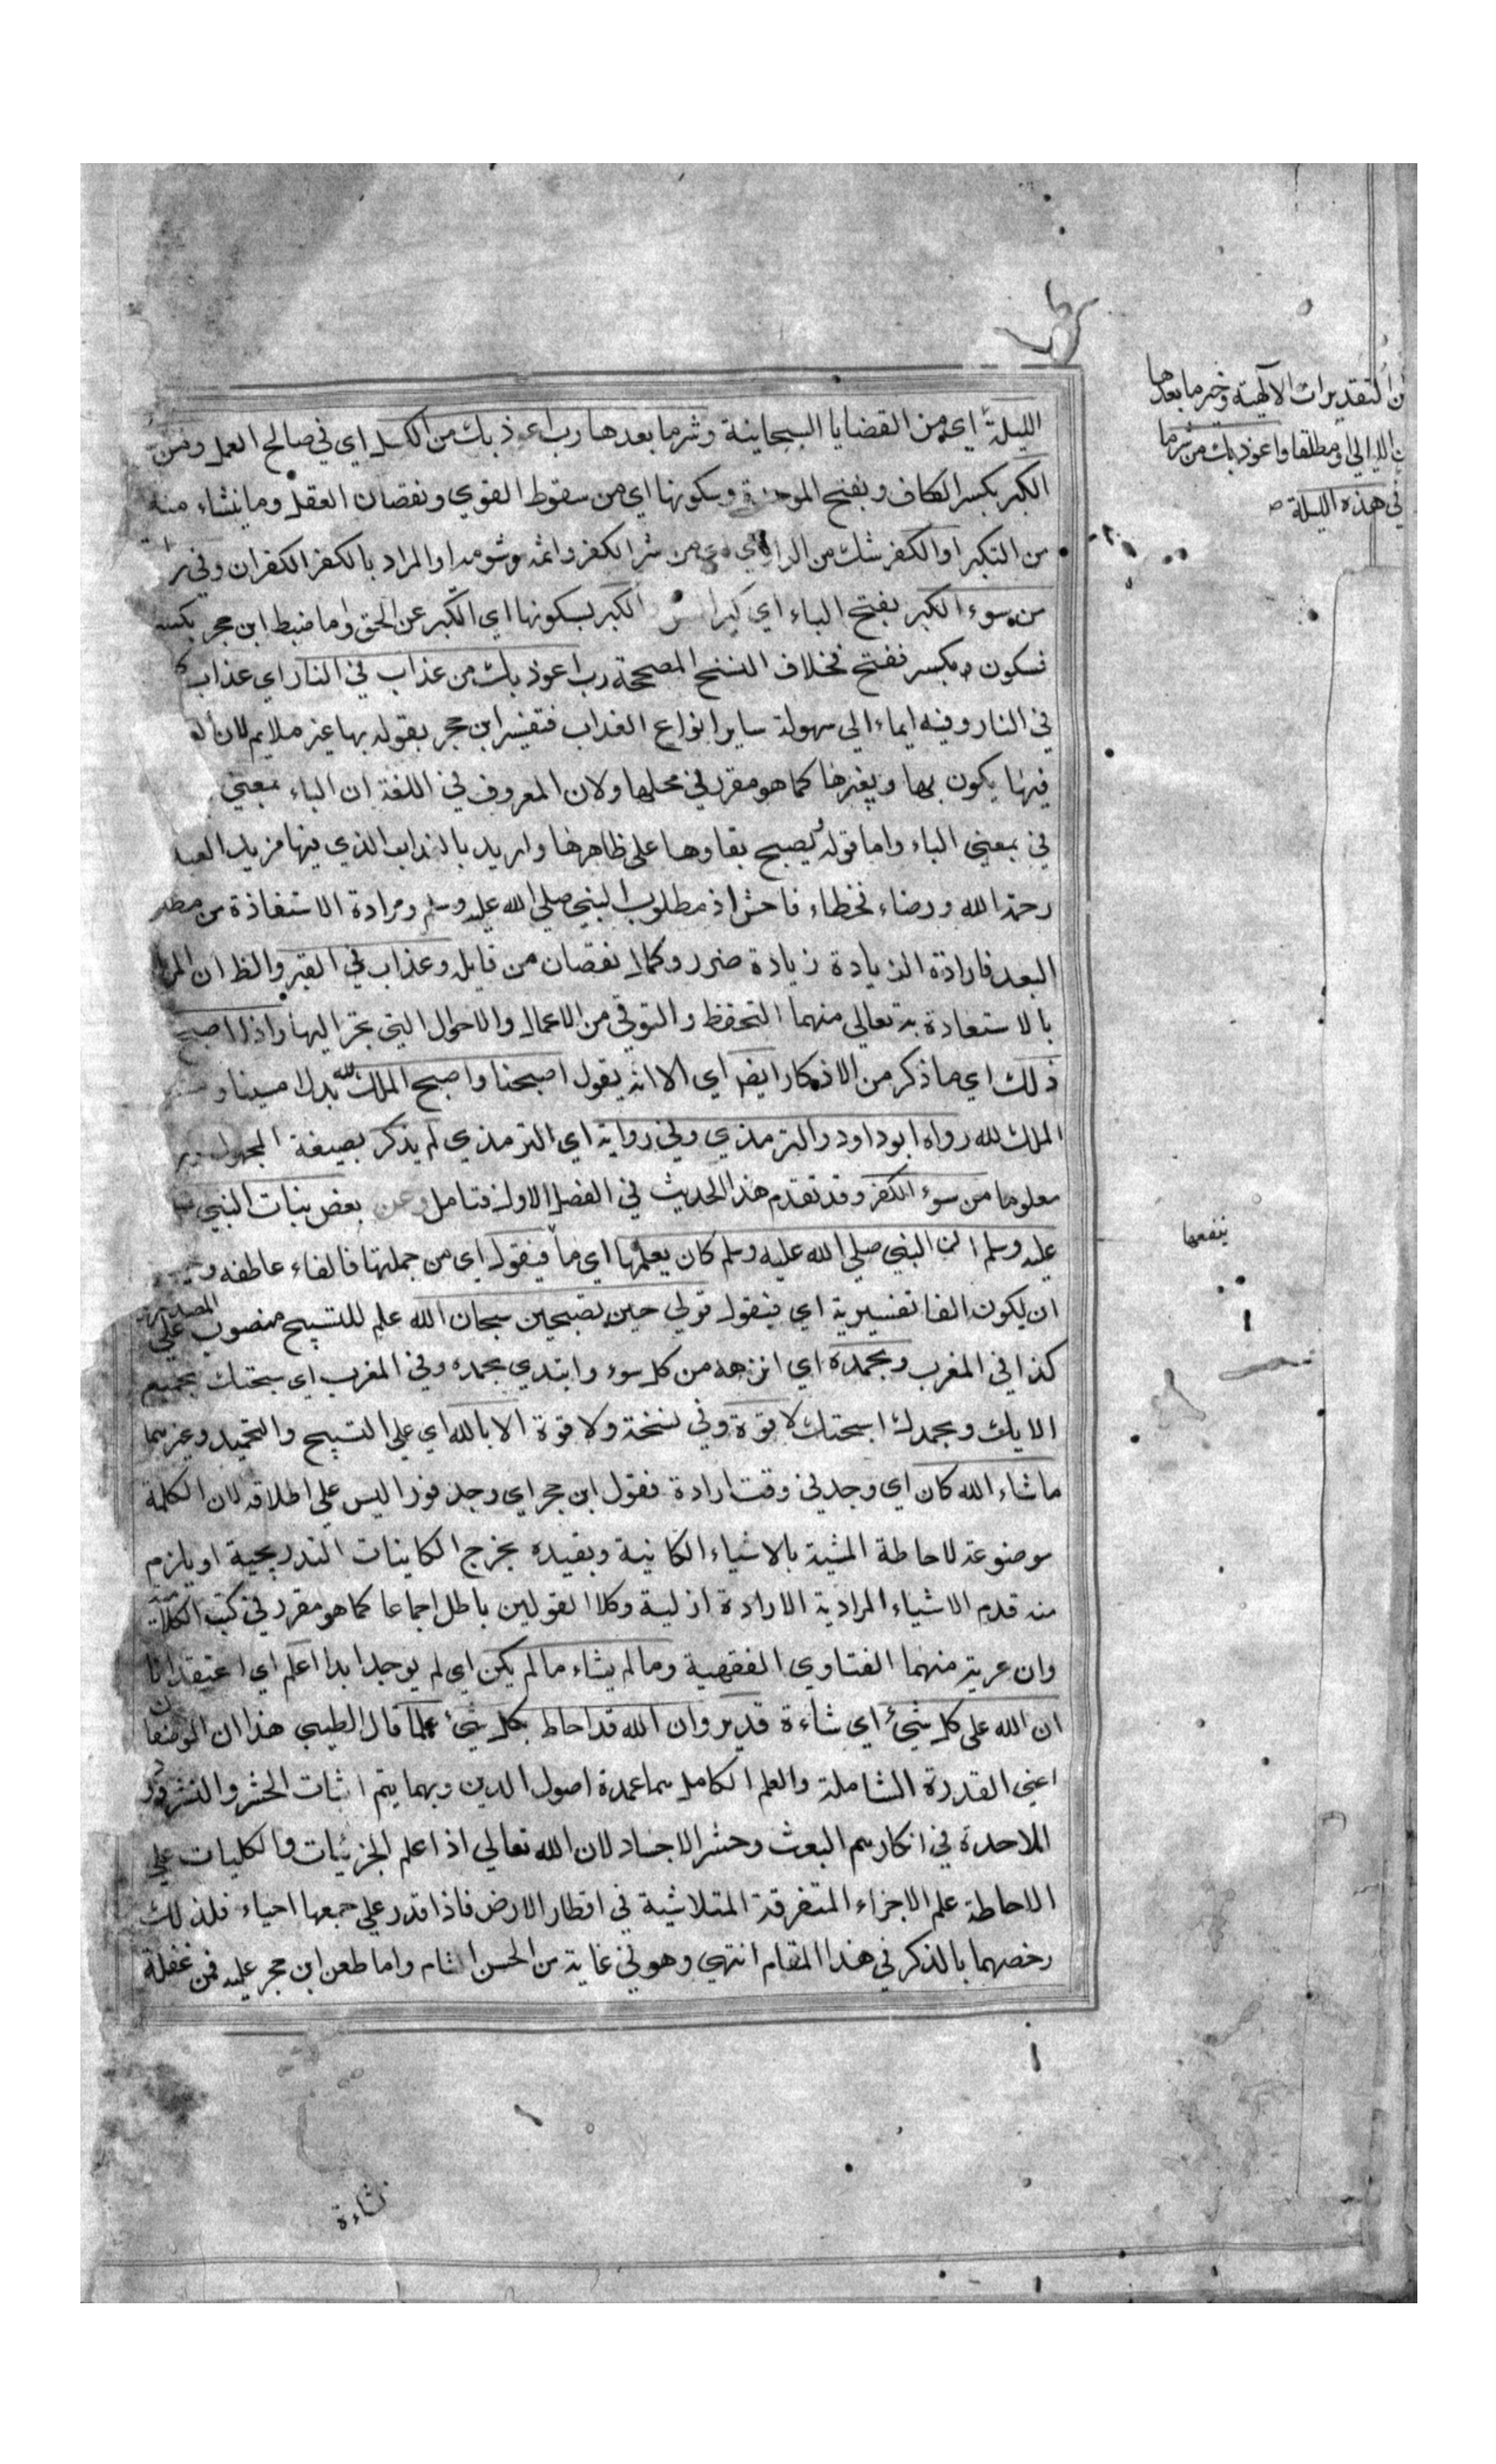 ن التقديرات الآلهية وخير ما بعدها
ن الليالي او مطلقا واعوذ بك من شر ما
في هذه الليلة صـ
الليلة اي من القضايا السبحانية وشر ما بعدها رب اعوذ بك من الكسل اي في صالح العمل ومن
الكبر بكسر الكاف وبفتح الموحدة وسكونها اي من سقوط القوي ونقصان العقل وما ينشاء منه
من التكبر او الكفر شك من الراوي اي من شر الكفر واثمه وشومه او المراد بالكفر الكفران وفي
من سوء الكبر بفتح الباء اي كبر السن والكبر بسكونها اي الكبر عن الحق واما ضبط ابن حجر بكسر
فسكون وبكسر ففتح فخلاف النسخ المصححة رب اعوذ بك من عذاب في النار اي عذاب
في النار وفيه ايماء الي سهولة ساير انواع العذاب فتفسير ابن حجر بقوله بها غير ملايم لان
فيها يكون بها وبغيرها كما هو مقرر في محلها ولان المعروف في اللغة ان الباء بمعني
في بمعني الباء واما قوله ليصبح بقاوها علي ظاهرها واريد بالعذاب الذي فيها مزيد البعد
رحمة الله ورضاء فخطاء فاحش اذ مطلوب النبي صلي الله عليه وسلم ومرادة الاستعاذة من مطلق
البعد فارادة الزيادة زيادة ضرر وكمال نقصان من قايله وعذاب في القبر والظ ان المراد
بالاستعاذة به تعالي منهما التحفظ والتوقي من الاعمال والاحوال التي تجر اليها واذا اصبح
ذلك اي ما ذكر من الاذكار ايضا اي الا انه يقول اصبحنا واصبح الملك لله بدل امسينا و
الملك لله رواه ابو داود والترمذي وفي رواية اي الترمذي لم يذكر بصيغة المجهول
معلوما من سوء الكفر وقد تقدم هذا الحديث في الفصل الاول فتامل وعن بعض بنات النبي
عليه وسلم ان النبي صلي الله عليه وسلم كان يعلمها اي ما ينفعها فيقول اي من جملتها فالفاء عاطفه و
ان يكون الفا تفسيرية اي فيقول قولي حين تصبحين سبحان الله علم للتسبيح منصوب علي المصدرية
كذا في المغرب وبحمده اي انزهه من كل سوء وابتدي بحمده وفي المغرب اي سبحتك بجميع
الايك وبحمدك اسبحتك لا قوة وفي نسخة ولا قوة الا بالله اي علي التسبيح والتحميد وغيرهما
ما شاء الله كان اي وجد في وقت ارادة فقول ابن حجر اي وجد فورا ليس علي اطلاقه لان الكلمة
موضوعة لاحاطة المشية بالاشياء الكاينة وبقيده يخرج الكاينات التدريجية او يلزم
منه قدم الاشياء المرادية الارادة ازلية وكلا القولين باطل اجماعا كما هو مقرر في كتب الكلامية
وان عرية منهما الفتاوي الفقهية وما لم يشاء ما لم يكن اي لم يوجد ابدا اعلم اي اعتقد انا
ان الله علي كل شيئ اي شاءة قدير وان الله قد احاط بكل شيئ علما قال الطيبي هذا ان الوصفان
اعني القدرة الشاملة والعلم الكامل هما عمدة اصول الدين وبهما يتم اثبات الحشر والنشر ورد
الملاحدة في انكارهم البعث وحشر الاجساد لان الله تعالي اذا علم الجزئيات والكليات علي
الاحاطة علم الاجزاء المتفرقة المتلاشية في اقطار الارض فاذا قدر علي جمعها احياء فلذلك
رخصهما بالذكر في هذا المقام انتهي وهو في غاية من الحسن التام واما طعن ابن حجر عليه فمن غفلة
ينفعها
نشاءة